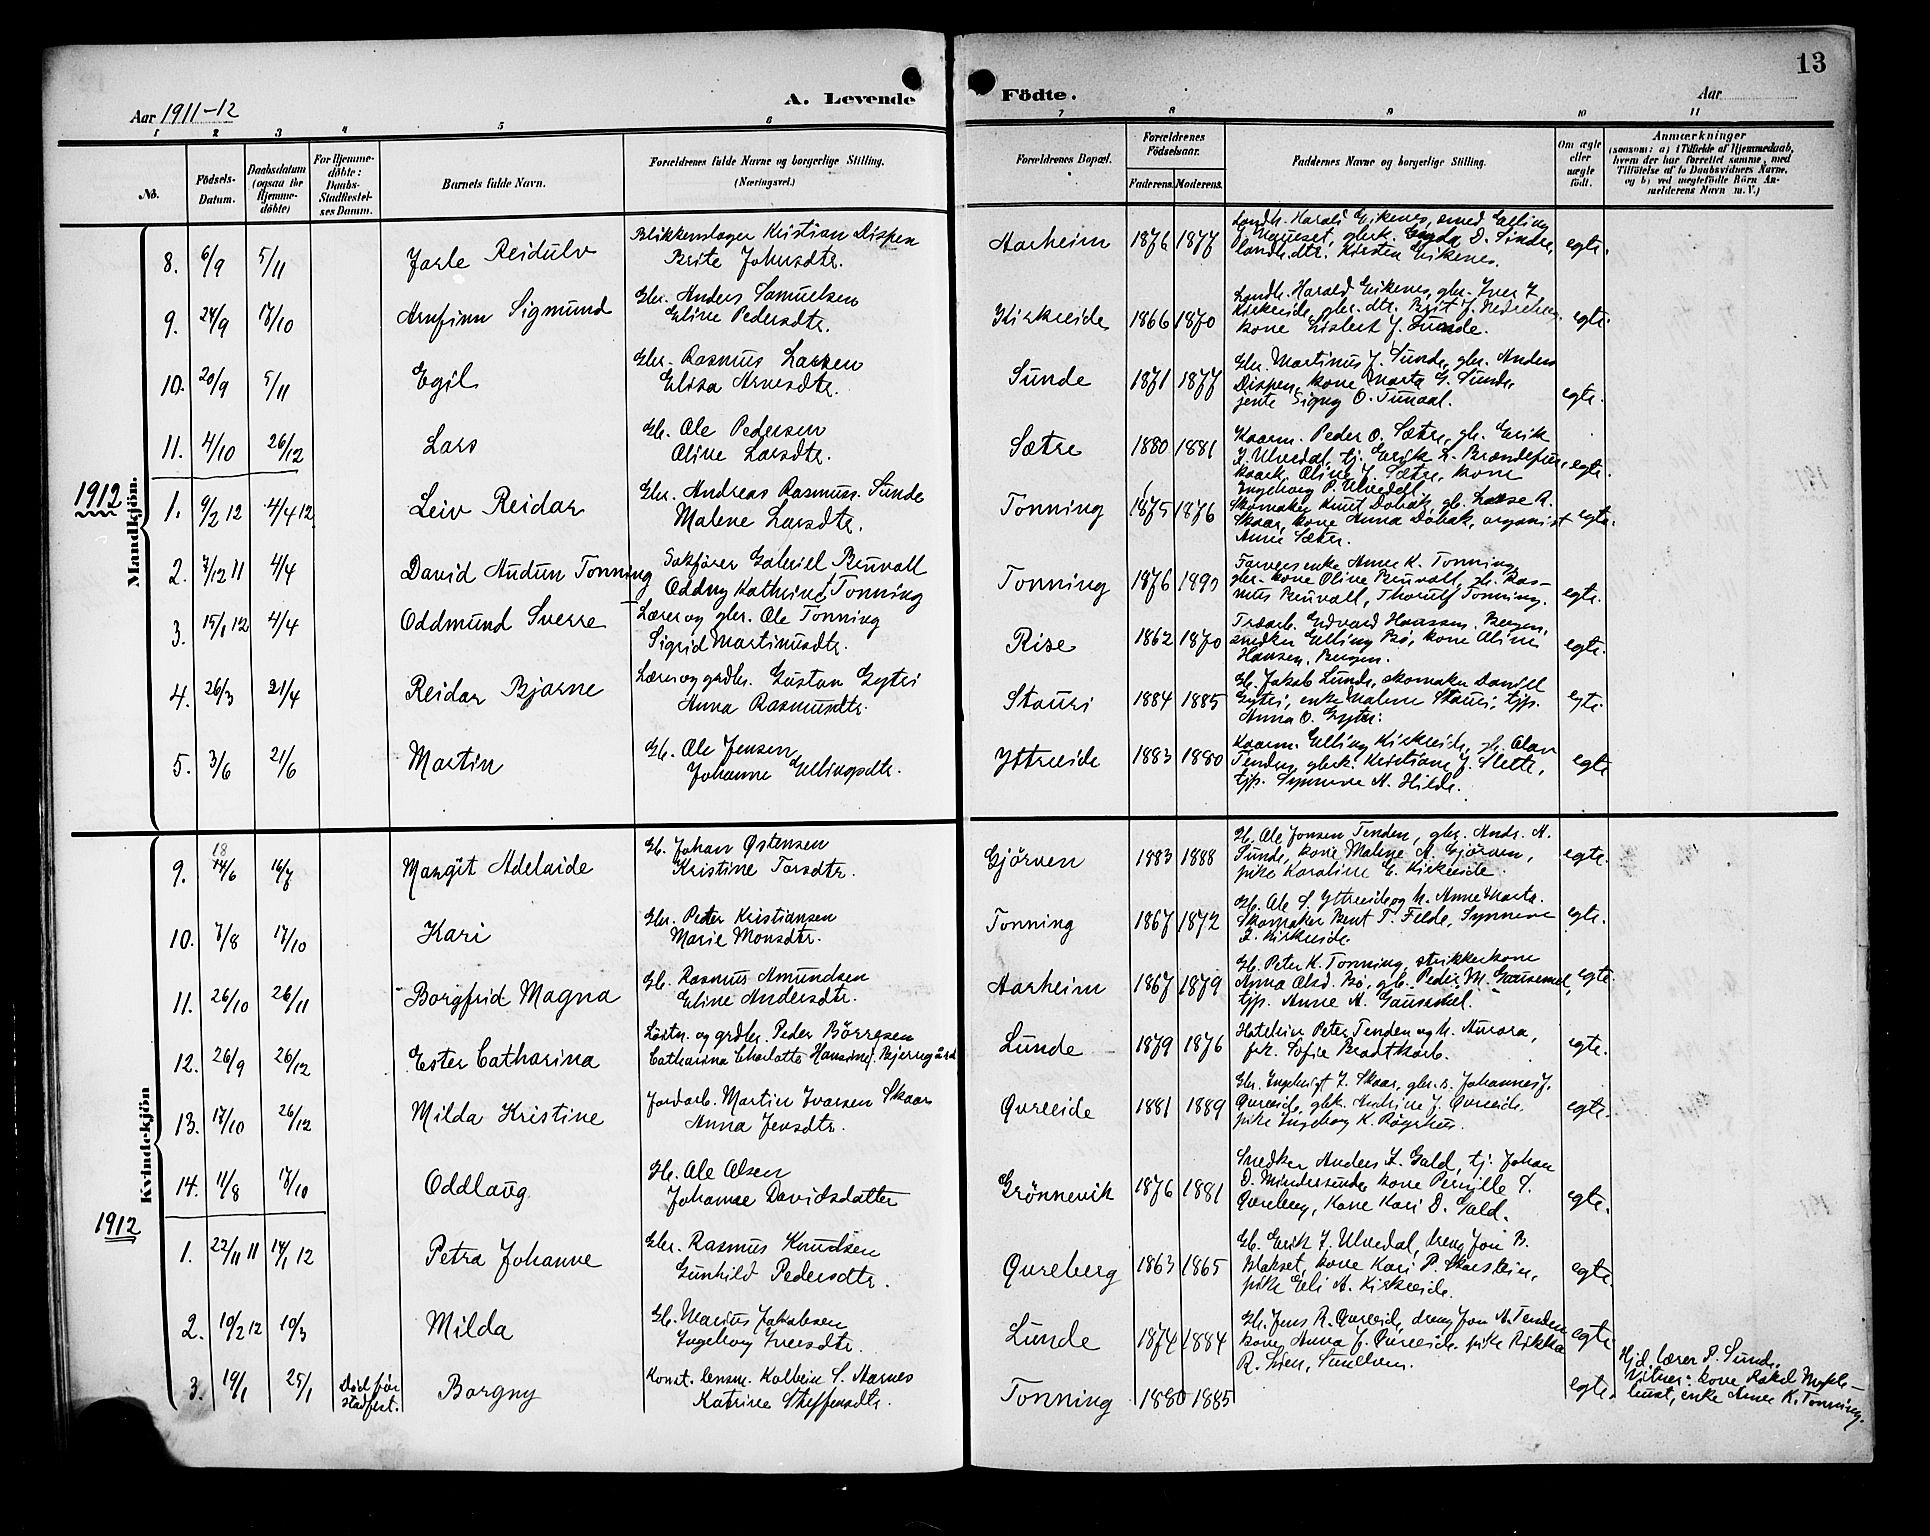 13
Aar 1911-12
A. Levende
Födte.
Aar
1 2 3 4 5 6 7 8 9 10 11
No.
Födsels-Datum.
Daabsdatum (ogsaa for Hjemme-döbte)
For Hjemme-döbte: Daabs-Stadfæstel-ses Datum.
Barnets fulde Navn.
Forældrenes fulde Navne og borgerlige Stilling. (Næringsvei.)
Forældrenes Bopæl.
Forældrenes Födselsaar.
Faderens. Moderens.
Faddernes Navne og borgerlige Stilling.
Om ægte eller uægte födt.
Anmærkninger
(saasom: a) i Tilfælde af Hjemmedaab, hvem der har forrettet samme, med Tilföielse af to Daabsvidners Navne, og b) ved uægtefödte Börn Anmelderens Navn m. V.)
Mandkjön.
8. 6/9 5/11 Jarle Reidulv Blikkenslager Kristian Dispen
Brite Johnsdtr. Aarheim 1876 1877 Landh. Harald Eikenes, smed Elling
landh.dtr. Kirsten Eikenes. egte.
9. 24/9 17/10 Arnfinn Sigmund Gbr. Anders Samuelsen
Eline Pedersdtr. Kirkeeide 1866 1870 Landh. Harald Eikenes, gbr. Iver J.
Kirkeeide, gbr. dtr. Brit J.
kone Lisbert J. Sunde. egte.
10. 20/9 5/11 Egil Gbr. Rasmus Larsen
Elisa Arnesdtr. Sunde 1871 1877 Gbr. Martinus J. Sunde, gbr. Anders
Dispen, kone Marta G. Sunde
jente Signy O. egte.
11. 4/10 26/12 Lars Gb. Ole Pedersen
Oline Larsdtr. Sætre 1880 1881 Kaarm. Peder O. Sætre, gb. Erik
J. Ulvedal, tj. Henrik L.
Oline J. Sætre, kone
Ingeborg P. Ulvedal egte.
1912
1. 9/2 12 4/4 12 Leiv Reidar Gbr. Andreas Rasmuss. Sunde
Malene Larsdtr. Tonning 1875 1876 Skomaker Knut Dobak, gb. Lasse R.
Skaar, kone Anna Dobak, organist
Anne Sæter. egte.
2. 7/12 11 4/4 David Audun Tonning Sakfører Gabriel Bruvoll
Oddny Kathrine Tonning Tonning 1876 1890 Farverenke Anne K. Tonning,
gbr. kone Oline Bruvoll, gb. Ras-
mus Bruvoll, Thorulf Tonning. egte.
3. 15/1 12 4/4 Oddmund Sverre Lærer og gbr. Ole Tonning
Sigrid Martinusdtr. Rise 1862 1870 Træarb. Edvard Hanssen, Bergen,
snedker Elling Bø, kone Oline
Hansen, Bergen. egte.
4. 26/3 21/4 Reidar Bjarne Lærer og grdbr. Gustav Gytri
Anna Rasmusdtr. Stauri 1884 1885 Gb. Jakob Lunde, skomaker Daniel
Gytri, enke Malene Stauri, tjp.
Anna O. Gytri. egte.
5. 3/6 21/6 Martin Gb. Ole Jensen
Johanne Ellingsdtr. Ytreeide 1883 1880 Kaarm. Elling Kirkeeide, gb. Olav
Tenden, gbrk. Kristiane J. Slette,
tjp. Synneve A. Hilde. egte
Kvindekjön
9. 18 14/6 16/7 Margit Adelaide Gb. Johan Østensen
Kristine Torsdtr. Gjörven 1883 1888 Gb. Ole Jonsen Tenden, gbr. Andr. A.
Sunde, kone Malene A. Gjörven,
pike Karoline E. Kirkeeide. egte.
10. 7/8 17/10 Kari Gbr. Peter Kristiansen
Marie Monsdtr. Tonning 1867 1872 Gb. Ole S. Ytreeide og h. Anne Marta.
Skomaker Bent T. Felde, Synneve
I. Kirkeeide. egte.
11. 26/10 26/11 Borgfrid Magna Gb. Rasmus Amundsen
Eline Andersdtr. Aarheim 1867 1879 Gb. Peter K. Tonning, strikkerkone
Anna Olsd. Bø, gb. Peder M. Gausemel,
tjp. Anne A. Gausemel. egte.
12. 26/9 26/12 Ester Catharina Løitn. og grdbr. Peder Börresen
Catharina Charlotte Hansine f. Bjerregård Lunde 1879 1876 Hoteleier Peter Tenden og h. Aurora,
frk. Sofie Bradtkorb. egte.
13. 17/10 26/12 Milda Kristine Jordarb. Martin Ivarsen Skaar
Anna Jensdtr. Qvreeide 1881 1889 Gbr. Ingebrigt I. Skaar, gbr.s. Johannes J.
Qvreeide, gbk. Andrine J. Qvreeide
pike Ingeborg K. Röyrhus. egte.
14. 11/8 17/10 Oddlaug Gb. Ole Olsen
Johanne Davidsdatter Grönnevik 1876 1881 Snedker Anders I. Gald, tj. Johan
D. Mindresunde kone Pernille S.
Qvreberg, kone Kari D. Gald. egte.
1912
1. 22/11 11 14/1 12 Petra Johanne Gbr. Rasmus Knudsen
Gunhild Pedersdtr. Qvreberg 1863 1865 Gb. Erik J. Ulvedal, dreng Jon B.
Blakset, kone Kari P. Skarstein,
pike Eli A. Kirkeeide. egte.
2. 10/2 12 10/3 Milda Gb. Marius Jakobsen
Ingeborg Iversdtr. Lunde 1874 1884 Gb. Jens R. Qvreeide, dreng Jon A. Tenden
kone Anna J. Qvreeide, pike Rikka
R. egte.
3. 19/1 25/1 Död før stadfest. Borgny Konst. lensm. Kolbein S. Aarnes
Katrine Steffensdtr. Tonning 1880 1885 egte. Hjd. lærer P. Sunde.
Vitner: kone Rakel Mykle-
bust, enke Anne K. Tonning.